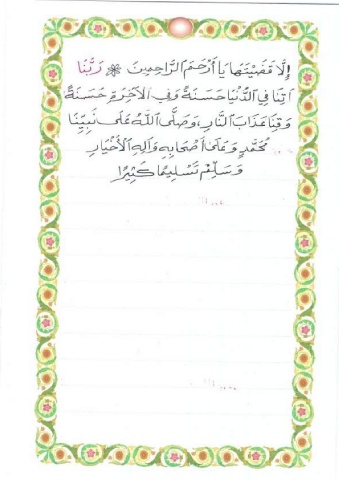 إِلَّا قَضَيْتَهَا يَا أَرْحَمَ الرَّاحِمِينَ ❋ رَبَّنَا
اٰتِنَا فِي الدُّنْيَا حَسَنَةً وَفِي الْاٰخِرَةِ حَسَنَةً
وَقِنَا عَذَابَ النَّارِ، وَصَلَّى اللّٰهُ عَلٰى نَبِيِّنَا
مُحَمَّدٍ وَعَلٰى أَصْحَابِهِ وَآلِهِ الْأَخْيَارِ
وَسَلِّمْ تَسْلِيمًا كَثِيرًا